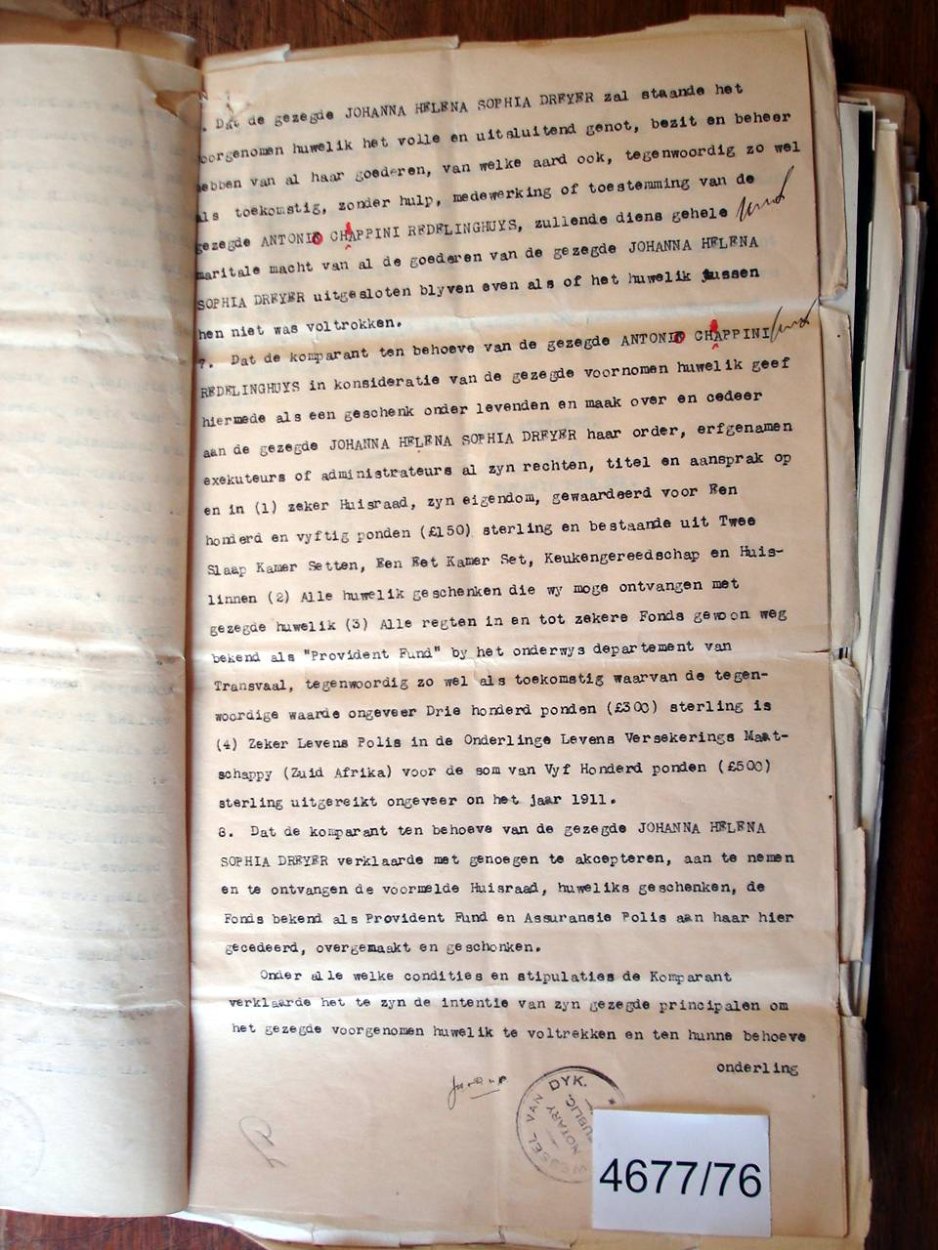 . Dat de gezegde JOHANNA HELENA SOPHIA DREYER zal staande het
oorgenomen huwelik het volle en uitsluitend genot, bezit en beheer
ebben van al haar goederen, van welke aard ook, tegenwoordig zo wel
als toekomstig, zonder hulp, medewerking of toestemming van de
gezegde ANTONIO CHAPPINI REDELINGHUYS, zullende diens gehele
maritale macht van al de goederen van de gezegde JOHANNA HELENA
SOPHIA DREYER uitgesloten blyven even als of het huwelik tussen
hen niet was voltrokken.
7. Dat de komparant ten behoeve van de gezegde ANTONIO CHAPPINI
REDELINGHUYS in konsideratie van de gezegde voornomen huwelik geef
hiermede als een geschenk onder levenden en maak over en cedeer
aan de gezegde JOHANNA HELENA SOPHIA DREYER haar order, erfgenamen
exekuteurs of administrateurs al zyn rechten, titel en aansprak op
en in (1) zeker Huisraad, zyn eigendom, gewaardeerd voor Een
honderd en vyftig ponden (£150) sterling en bestaande uit Twee
Slaap Kamer Setten, Een Eet Kamer Set, Keukengereedschap en Huis-
linnen (2) Alle huwelik geschenken die wy moge ontvangen met
gezegde huwelik (3) Alle regten in en tot zekere Fonds gewoon weg
bekend als "Provident Fund" by het onderwys departement van
Transvaal, tegenwoordig zo wel als toekomstig waarvan de tegen-
woordige waarde ongeveer Drie honderd ponden (£300) sterling is
(4) Zeker Levens Polis in de Onderlinge Levens Versekerings Maat-
schappy (Zuid Afrika) voor de som van Vyf Honderd ponden (£500)
sterling uitgereikt ongeveer on het jaar 1911.
8. Dat de komparant ten behoeve van de gezegde JOHANNA HELENA
SOPHIA DREYER verklaarde met genoegen te akcepteren, aan te nemen
en te ontvangen de voormelde Huisraad, huweliks geschenken, de
Fonds bekend als Provident Fund en Assuransie Polis aan haar hier
gecedeerd, overgemaakt en geschonken.
Onder alle welke condities en stipulaties de Komparant
verklaarde het te zyn de intentie van zyn gezegde principalen om
het gezegde voorgenomen huwelik te voltrekken en ten hunne behoeve
onderling
VAN DYK.
NOTARY
4677/76